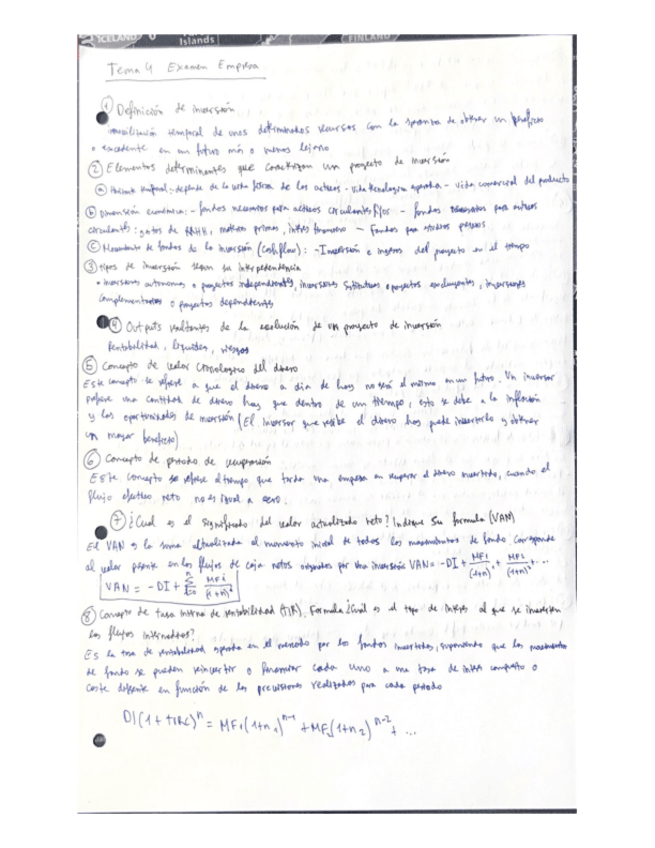 ICELAND
Islands
FINLAND
Tema 4 Examen Empresa
① Definición de inversión
inmovilización temporal de unos determinados recursos con la esperanza de obtener un beneficio
o excedente en un futuro más o menos lejano
② Elementos determinantes que caracterizan un proyecto de inversión
ⓐ Horizonte temporal: depende de la vida física de los activos - vida tecnologica esperada - vida comercial del producto
ⓑ Dimensión económica: - fondos necesarios para activos circulantes fijos - fondos necesarios para activos
circulantes: gatos de RRHH, materias primas, interes financiero - Fondos para
ⓒ Movimiento de fondos de la inversión (cashflow): - Inversión e ingresos del proyecto en el tiempo
③ tipos de inversión segun su interpendencia
• inversiones autonomas o proyectos independientes, inversiones sustitutivas o proyectos excluyentes, inversiones
complementarias o proyectos dependientes
④ Outputs resultantes de la evolución de un proyecto de inversión
Rentabilidad, liquidez, riesgos
⑤ Concepto de valor cronologico del dinero
Este concepto se refiere a que el dinero a dia de hoy no será el mismo en un futuro. Un inversor
prefiere una cantidad de dinero hoy que dentro de un tiempo, esto se debe a la inflación
y las oportunidades de inversión (El inversor que recibe el dinero hoy puede invertirlo y obtener
un mayor beneficio)
⑥ Concepto de periodo de recuperación
Este concepto se refiere al tiempo que tarda una empresa en recuperar el dinero invertido, cuando el
flujo efectivo neto no es igual a cero.
⑦ ¿Cual es el significado del valor actualizado neto? Indique su formula (VAN)
El VAN es la suma actualizada al momento inicial de todos los movimientos de fondo. Corresponde
al valor presente en los flujos de caja netos originados por una inversión VAN = -DI + MF1/(1+n)¹ + MF2/(1+n)² + ...
VAN = -DI + Σ MFi/(1+n)ⁱ
⑧ Concepto de tasa interna de rentabilidad (TIR), Formula ¿Cuál es el tipo de interes al que se invierten
los flujos intermedios?
Es la tasa de rentabilidad esperada en el mercado por los fondos invertidos, suponiendo que los movimientos
de fondo se pueden reinvertir o financiar cada uno a una tasa de interés compuesto o
coste diferente en función de las previsiones realizadas para cada periodo
DI(1 + TIRc)ⁿ = MF₁(1+n₁)ⁿ⁻¹ + MF₂(1+n₂)ⁿ⁻² + ...